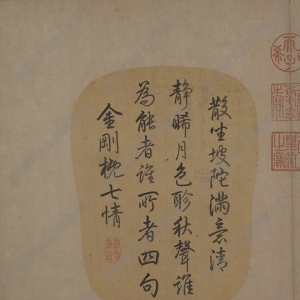 散坐坡陀滿意清
靜睎月色聆秋聲誰
為能者誰所者四句
金剛概七情